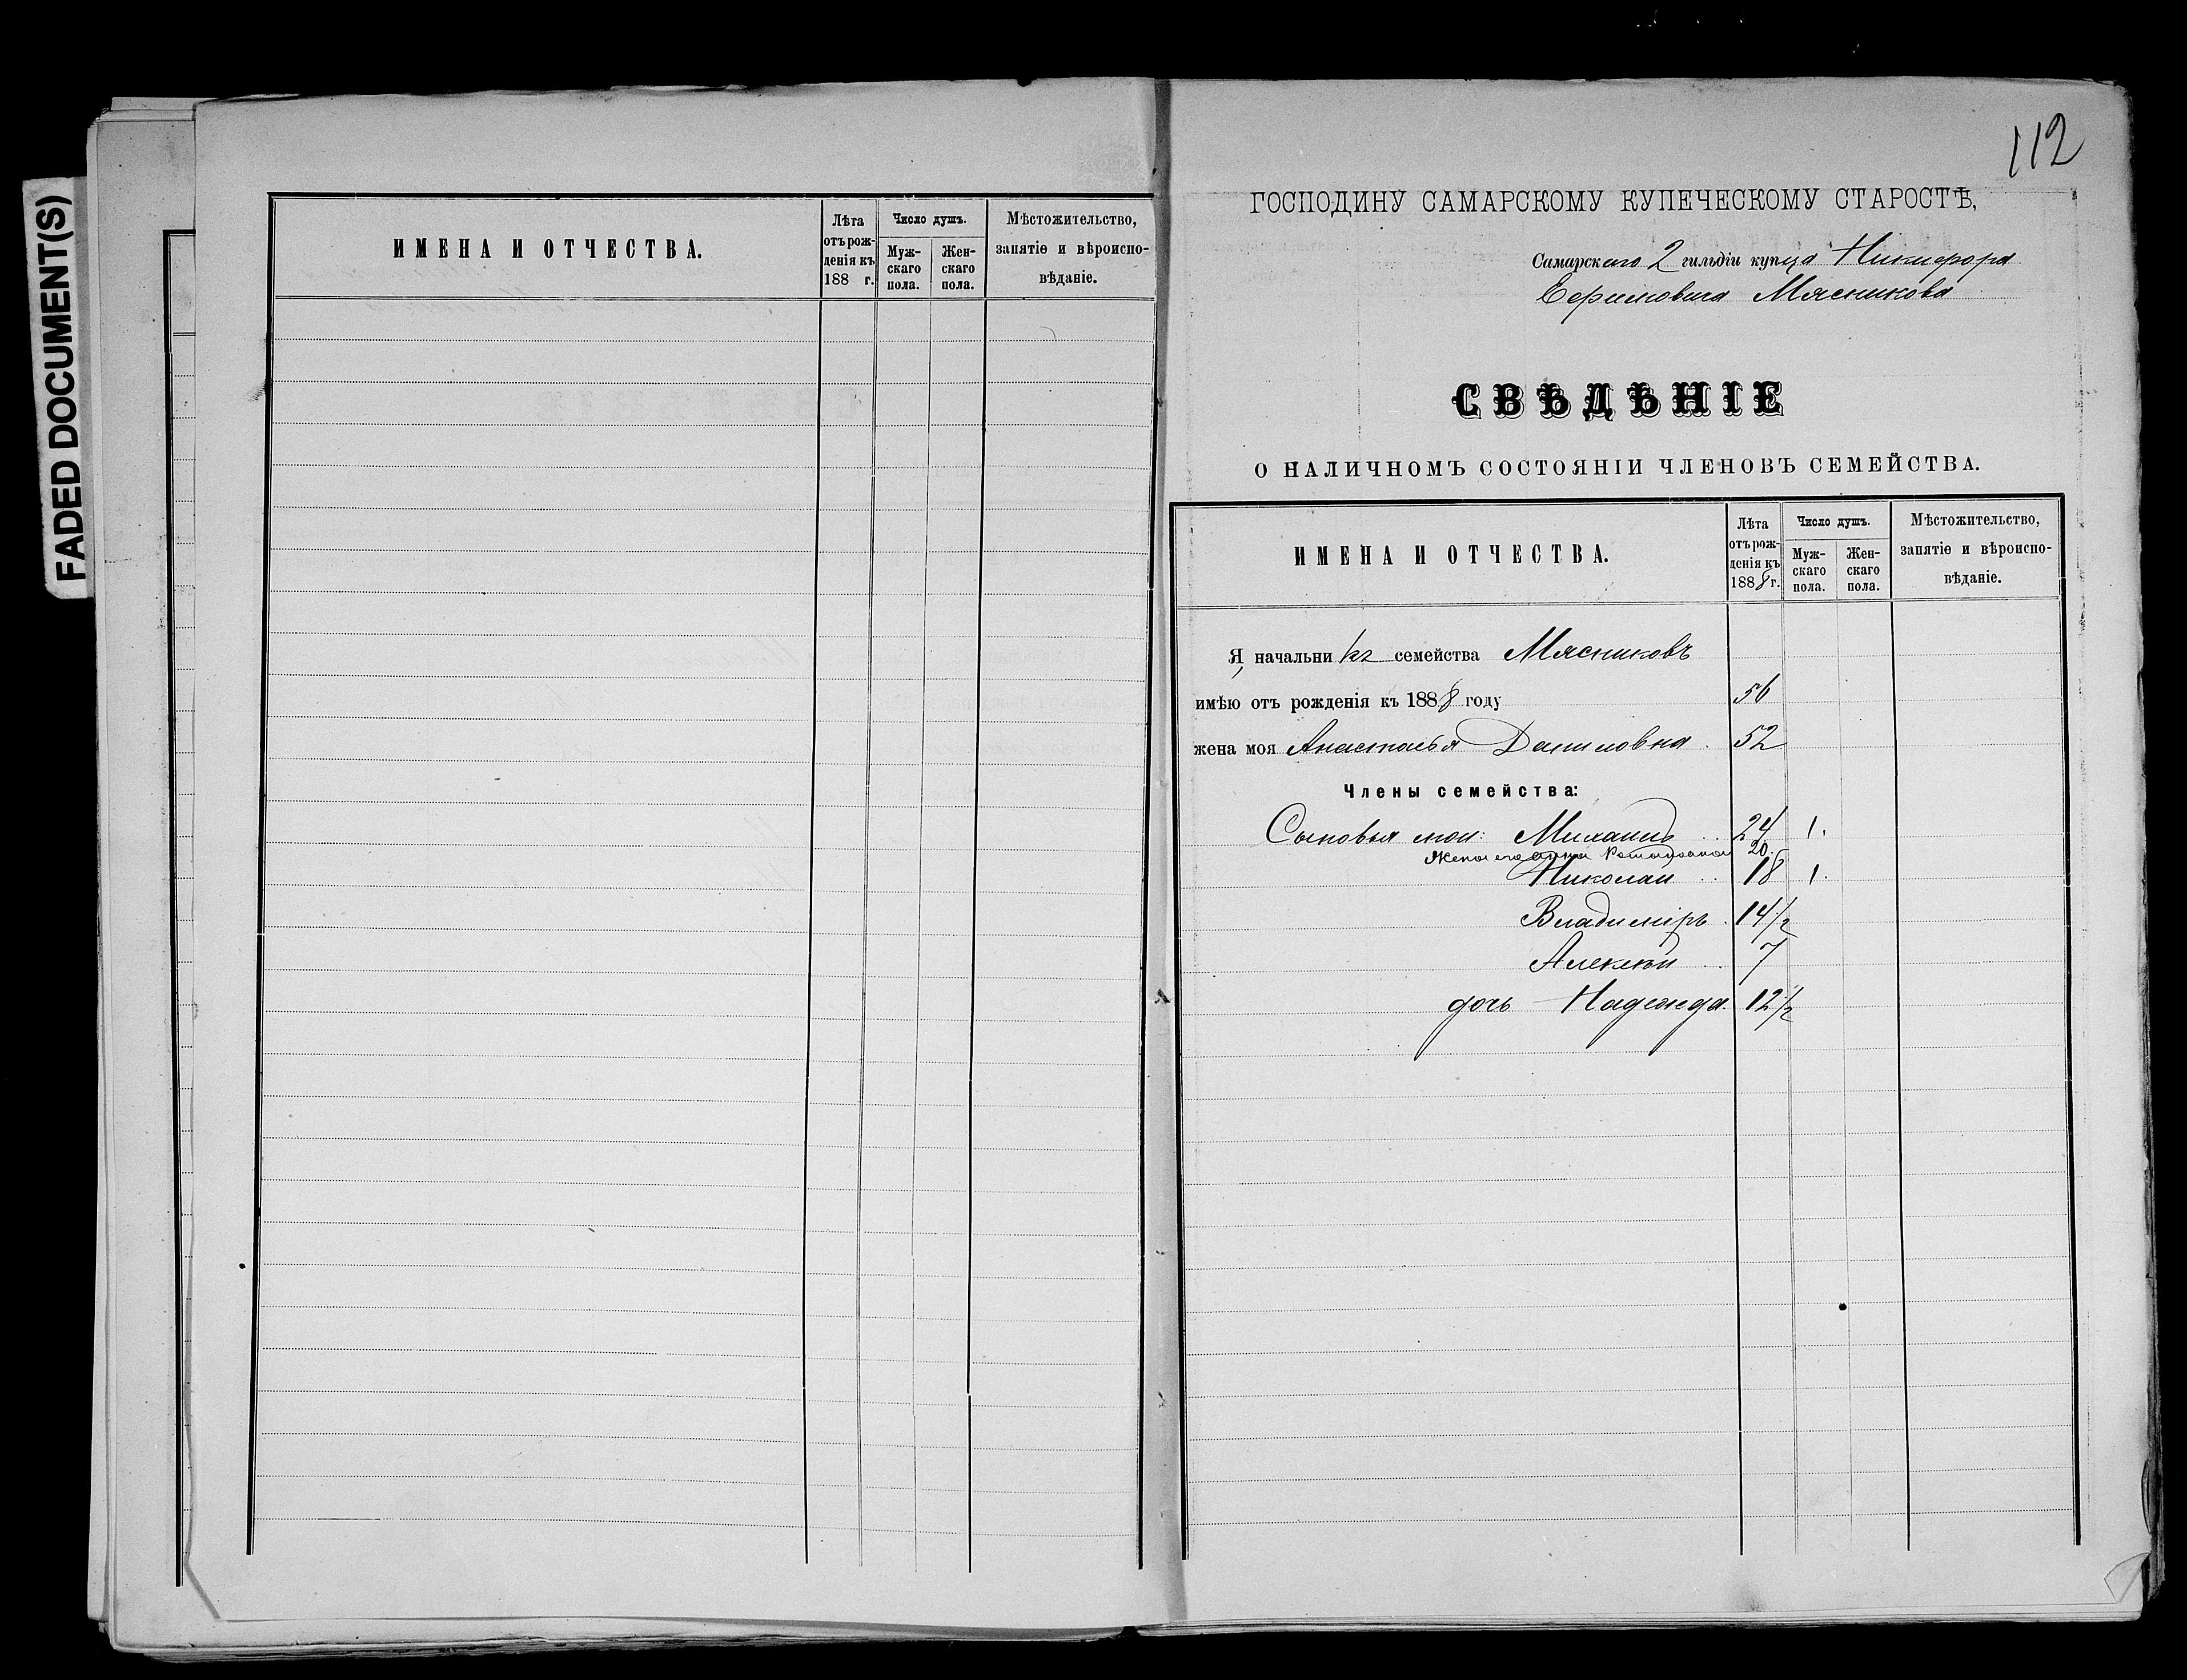 FADED DOCUMENT(S)
ИМЕНА И ОТЧЕСТВА.
Лѣта отъ рожденія къ 188 г.
Число душъ.
Мужскаго пола.
Женскаго пола.
Мѣстожительство, занятіе и вѣроисповѣданіе.
112
ГОСПОДИНУ САМАРСКОМУ КУПЕЧЕСКОМУ СТАРОСТѢ,
Самарскаго 2 гильдіи купца Никифора
Мясникова
СВѢДѢНІЕ
О НАЛИЧНОМЪ СОСТОЯНІИ ЧЛЕНОВЪ СЕМЕЙСТВА.
ИМЕНА И ОТЧЕСТВА.
Лѣта отъ рожденія къ 1888 г.
Число душъ.
Мужскаго пола.
Женскаго пола.
Мѣстожительство, занятіе и вѣроисповѣданіе.
Я, начальникъ семейства Мясниковъ
имѣю отъ рожденія къ 1888 году 56
жена моя Анастасья Даниловна. 52
Члены семейства:
Сыновья мои: Михаилъ 24 1.
Жена его Анна 20.
Николай 18 1.
Владиміръ 14 1/2
Алексѣй 7
дочь Надежда. 12 1/2